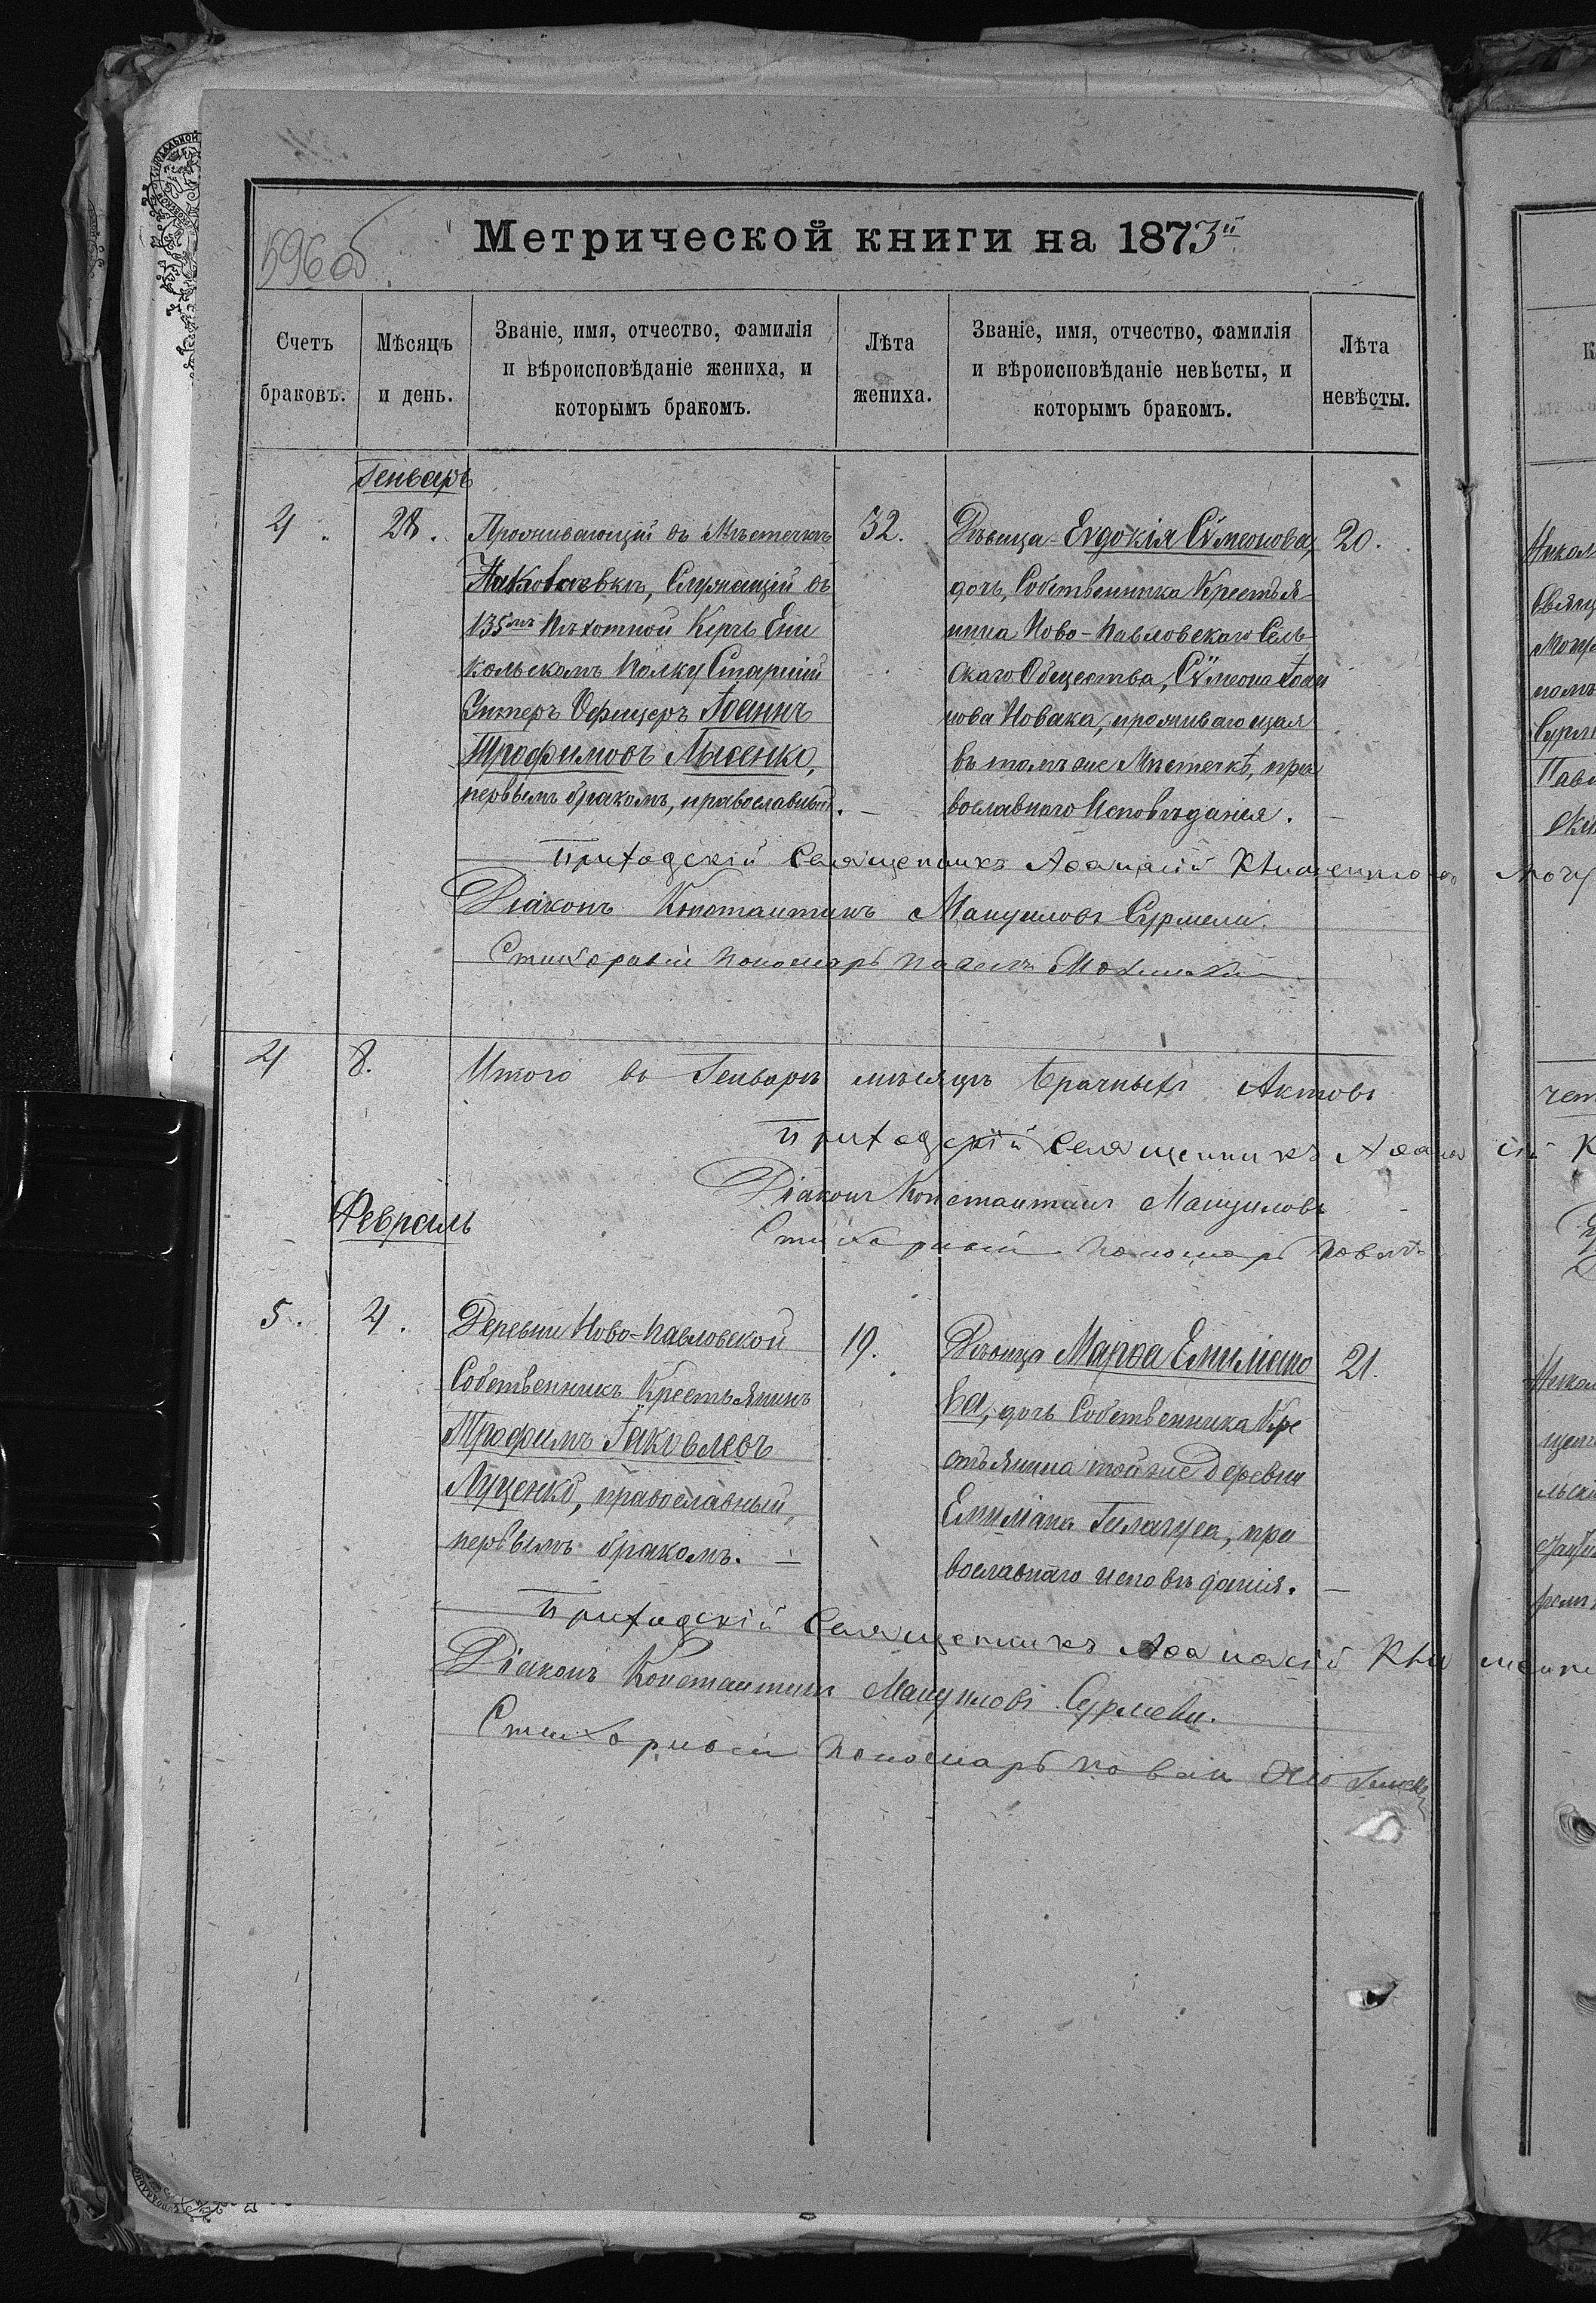 596 об
Метрической книги на 1873й
Счетъ браковъ.
Мѣсяцъ и день.
Званіе, имя, отчество, фамилія
и вѣроисповѣданіе жениха, и
которымъ бракомъ.
Лѣта жениха.
Званіе, имя, отчество, фамилія
и вѣроисповѣданіе невѣсты, и
которымъ бракомъ.
Лѣта невѣсты.
Генварь
4. 28.
Проживающій въ Мѣстечкѣ
служащій въ
135мъ Пѣхотной Керчь Ени
кольскомъ Полку Старшій
Унтеръ Офицеръ Іоаннъ
Трофимовъ Лысенко,
первымъ бракомъ, православный. —
32.
Дѣвица Еvдокія Сѵмеонова,
дочь, Собственника Крестья
нина Ново-Павловскаго Сель
скаго Общества, Сѵмеона
нова Новака, проживающая
въ томъ же Мѣстечкѣ, пра
вославнаго Исповѣданія. —
20.
Приходскій Священникъ Аѳанасій
Діаконъ Константинъ Мануиловъ Сурмели.
Стихарный Пономарь Павелъ
4 8. Итого въ Генварѣ мѣсяцѣ брачныхъ Актовъ
Приходскій Священникъ Аѳанасій К
Діаконъ Константинъ Мануиловъ
Стихарный Пономарь Павелъ
Февраль
5. 4.
Деревни Ново-Павловской
Собственникъ Крестьянинъ
Трофимъ Іаковлевъ
Луценко, православный,
первымъ бракомъ. —
19.
Дѣвица Марѳа Емиліано
ва, дочь Собственника Кре
стьянина той же Деревни
Емиліана пра
вославнаго исповѣданія. —
21.
Приходскій Священникъ Аѳанасій
Діаконъ Константинъ Мануиловъ Сурмели.
Стихарный Пономарь